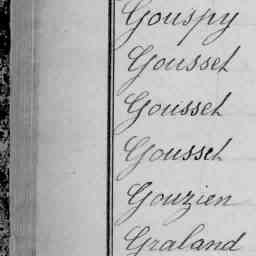 Gouspy
Gousset
Gousset
Gousset
Gouzien
Graland